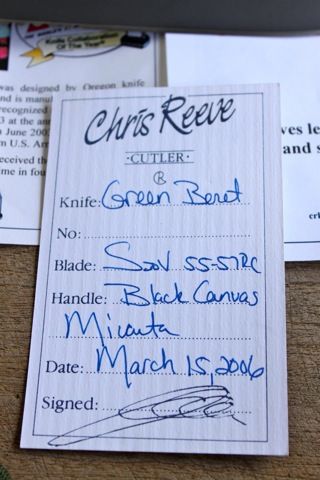 Knife Collaboration
Of The Year!
was designed by Oregon knife
nd is manu
recognized
3 at the an
June 2003
m U.S. Arm
received the
me in fou
ves le
and s
crk
Chris Reeve
·CUTLER·
Knife: Green Beret
No:
Blade: S30V 55-57RC
Handle: Black Canvas
Micarta
Date: March 15, 2006
Signed: